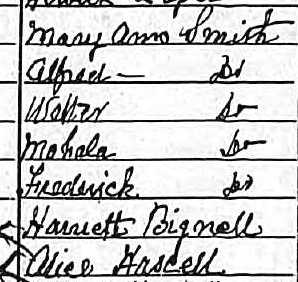 Mary Ann Smith
Alfred — Do
Walter Do
Mahala Do
Frederick Do
Harriett Bignell
Alice Hascell